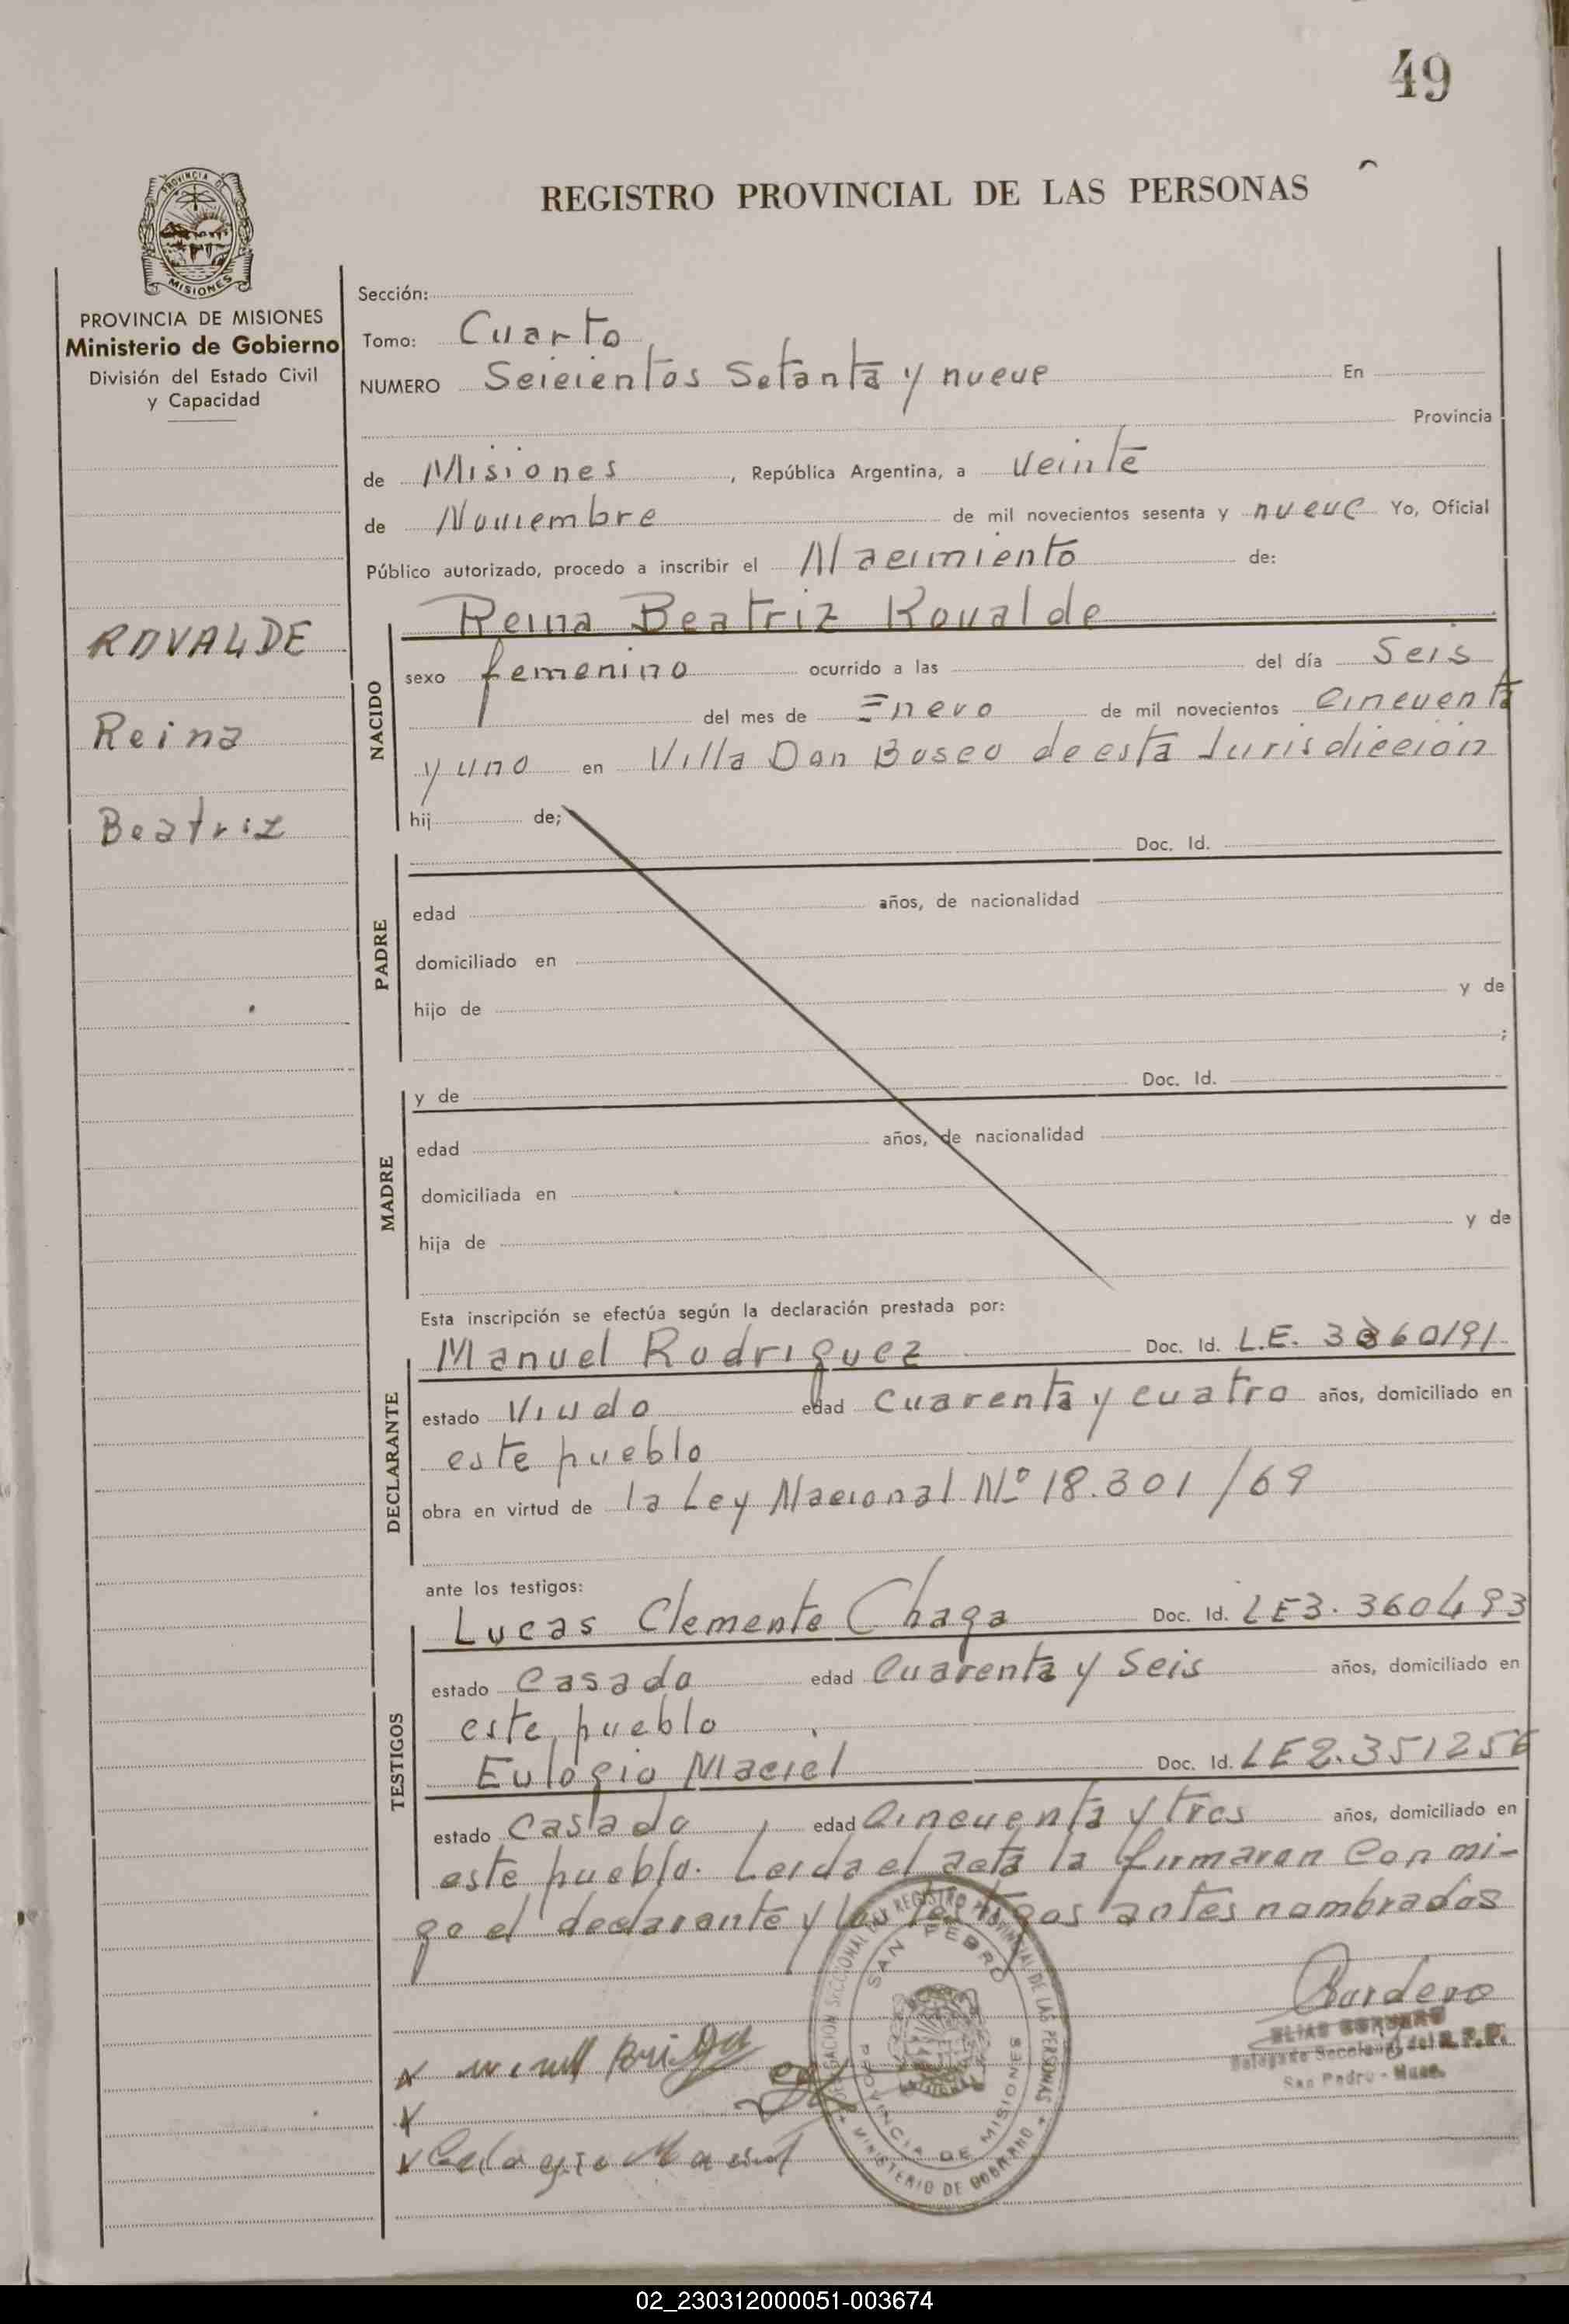 49
REGISTRO PROVINCIAL DE LAS PERSONAS
PROVINCIA DE
MISIONES
PROVINCIA DE MISIONES
Ministerio de Gobierno
División del Estado Civil
y Capacidad
ROVALDE
Reina
Beatriz
Sección:
Tomo: Cuarto
NUMERO Seicientos Setanta y nueve En
Provincia
de Misiones, República Argentina, a veinte
de Noviembre de mil novecientos sesenta y nueve Yo, Oficial
Público autorizado, procedo a inscribir el Nacimiento de:
NACIDO
Reina Beatriz Rovalde
sexo femenino ocurrido a las del día Seis
del mes de Enero de mil novecientos cincuenta
y uno en Villa Don Bosco de esta Jurisdiccion
hij de;
PADRE
Doc. Id.
edad años, de nacionalidad
domiciliado en
hijo de y de
;
MADRE
y de Doc. Id.
edad años, de nacionalidad
domiciliada en
hija de y de
Esta inscripción se efectúa según la declaración prestada por:
DECLARANTE
Manuel Rodriguez Doc. Id. L.E.
estado Viudo edad cuarenta y cuatro años, domiciliado en
este pueblo
obra en virtud de la Ley Nacional Nº 18.301/69
ante los testigos:
TESTIGOS
Lucas Clemente Chaga Doc. Id. LE3.360493
estado Casado edad Cuarenta y Seis años, domiciliado en
este pueblo
Eulogio Maciel Doc. Id. LE2.351256
estado Casado edad Cincuenta y tres años, domiciliado en
este pueblo. Leida el acta la firmaron con mi-
go el declarante y los testigos antes nombrados
DELEGACION SECCIONAL DEL REGISTRO PROVINCIAL DE LAS PERSONAS
SAN PEDRO
PROVINCIA DE MISIONES
MINISTERIO DE GOBIERNO
ELIAS
del R.P.P.
San Pedro - Mnes.
Eulogio Maciel
02_230312000051-003674